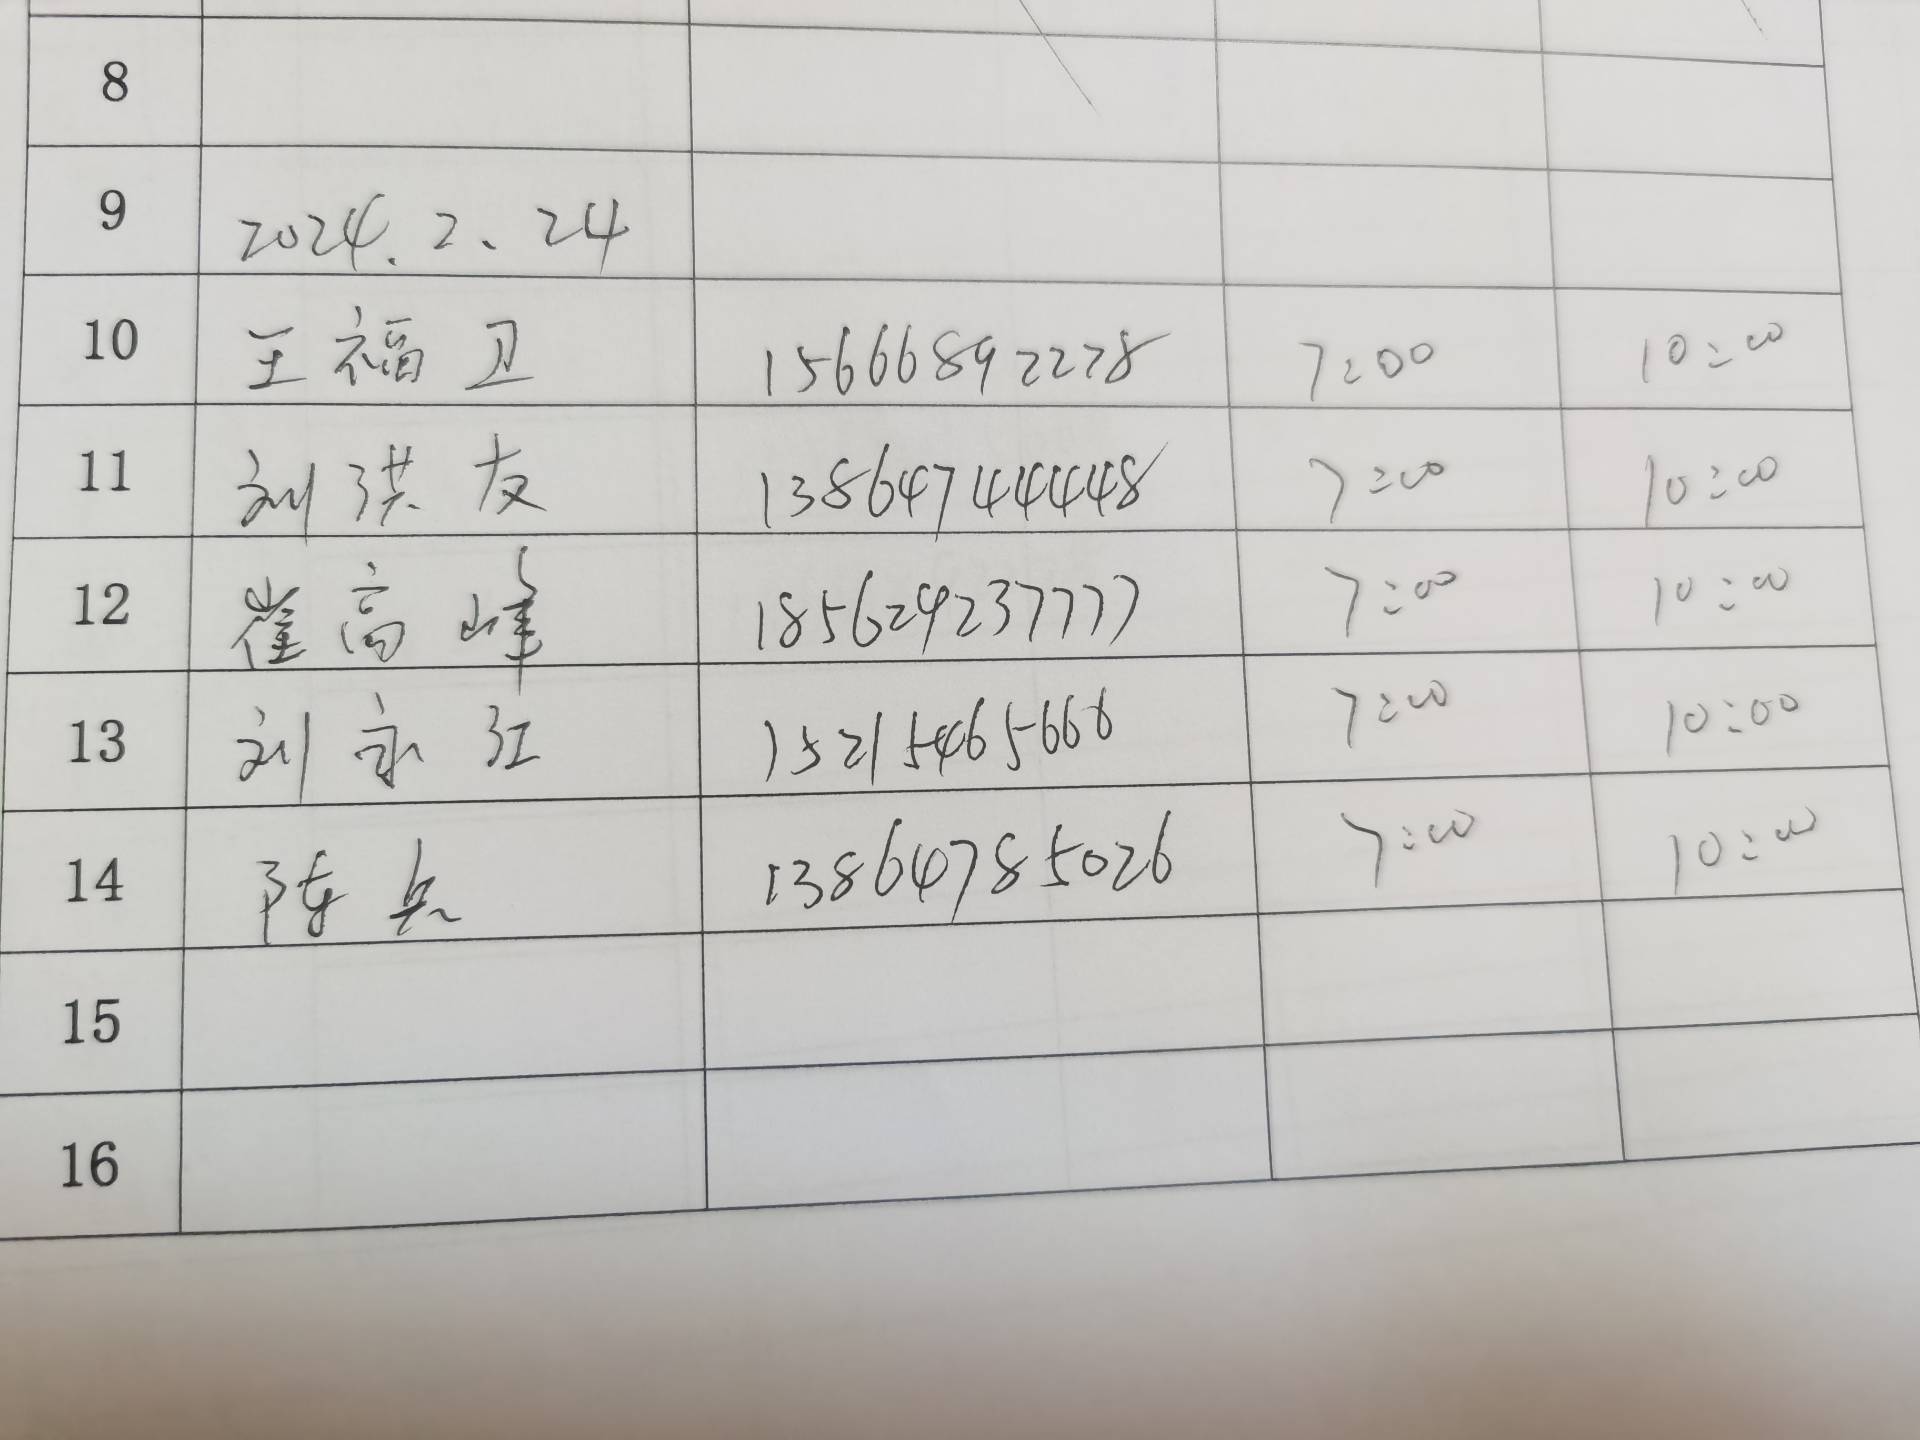 8
9 2024.2.24
10 王福卫 15666892278 7:00 10:00
11 刘洪友 13864744448 7:00 10:00
12 崔高峰 185624237777 7:00 10:00
13 刘永江 15215465666 7:00 10:00
14 陈兵 13864785026 7:00 10:00
15
16